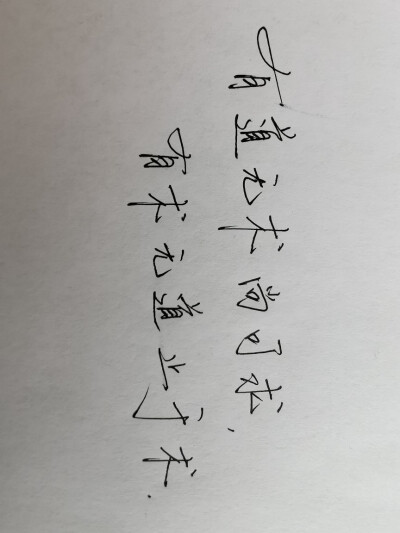 有道无术尚可求.
有术无道止于术.